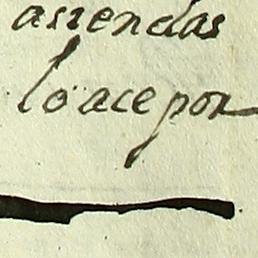 assendas
lo ace por